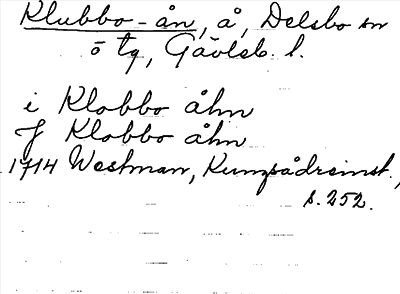 Klubbo-ån, å, Delsbo sn
ö tg, Gävleb. l.
i Klobbo åhn
f Klobbo åhn
1714 Westman, Kungsådreinst.,
s. 252.